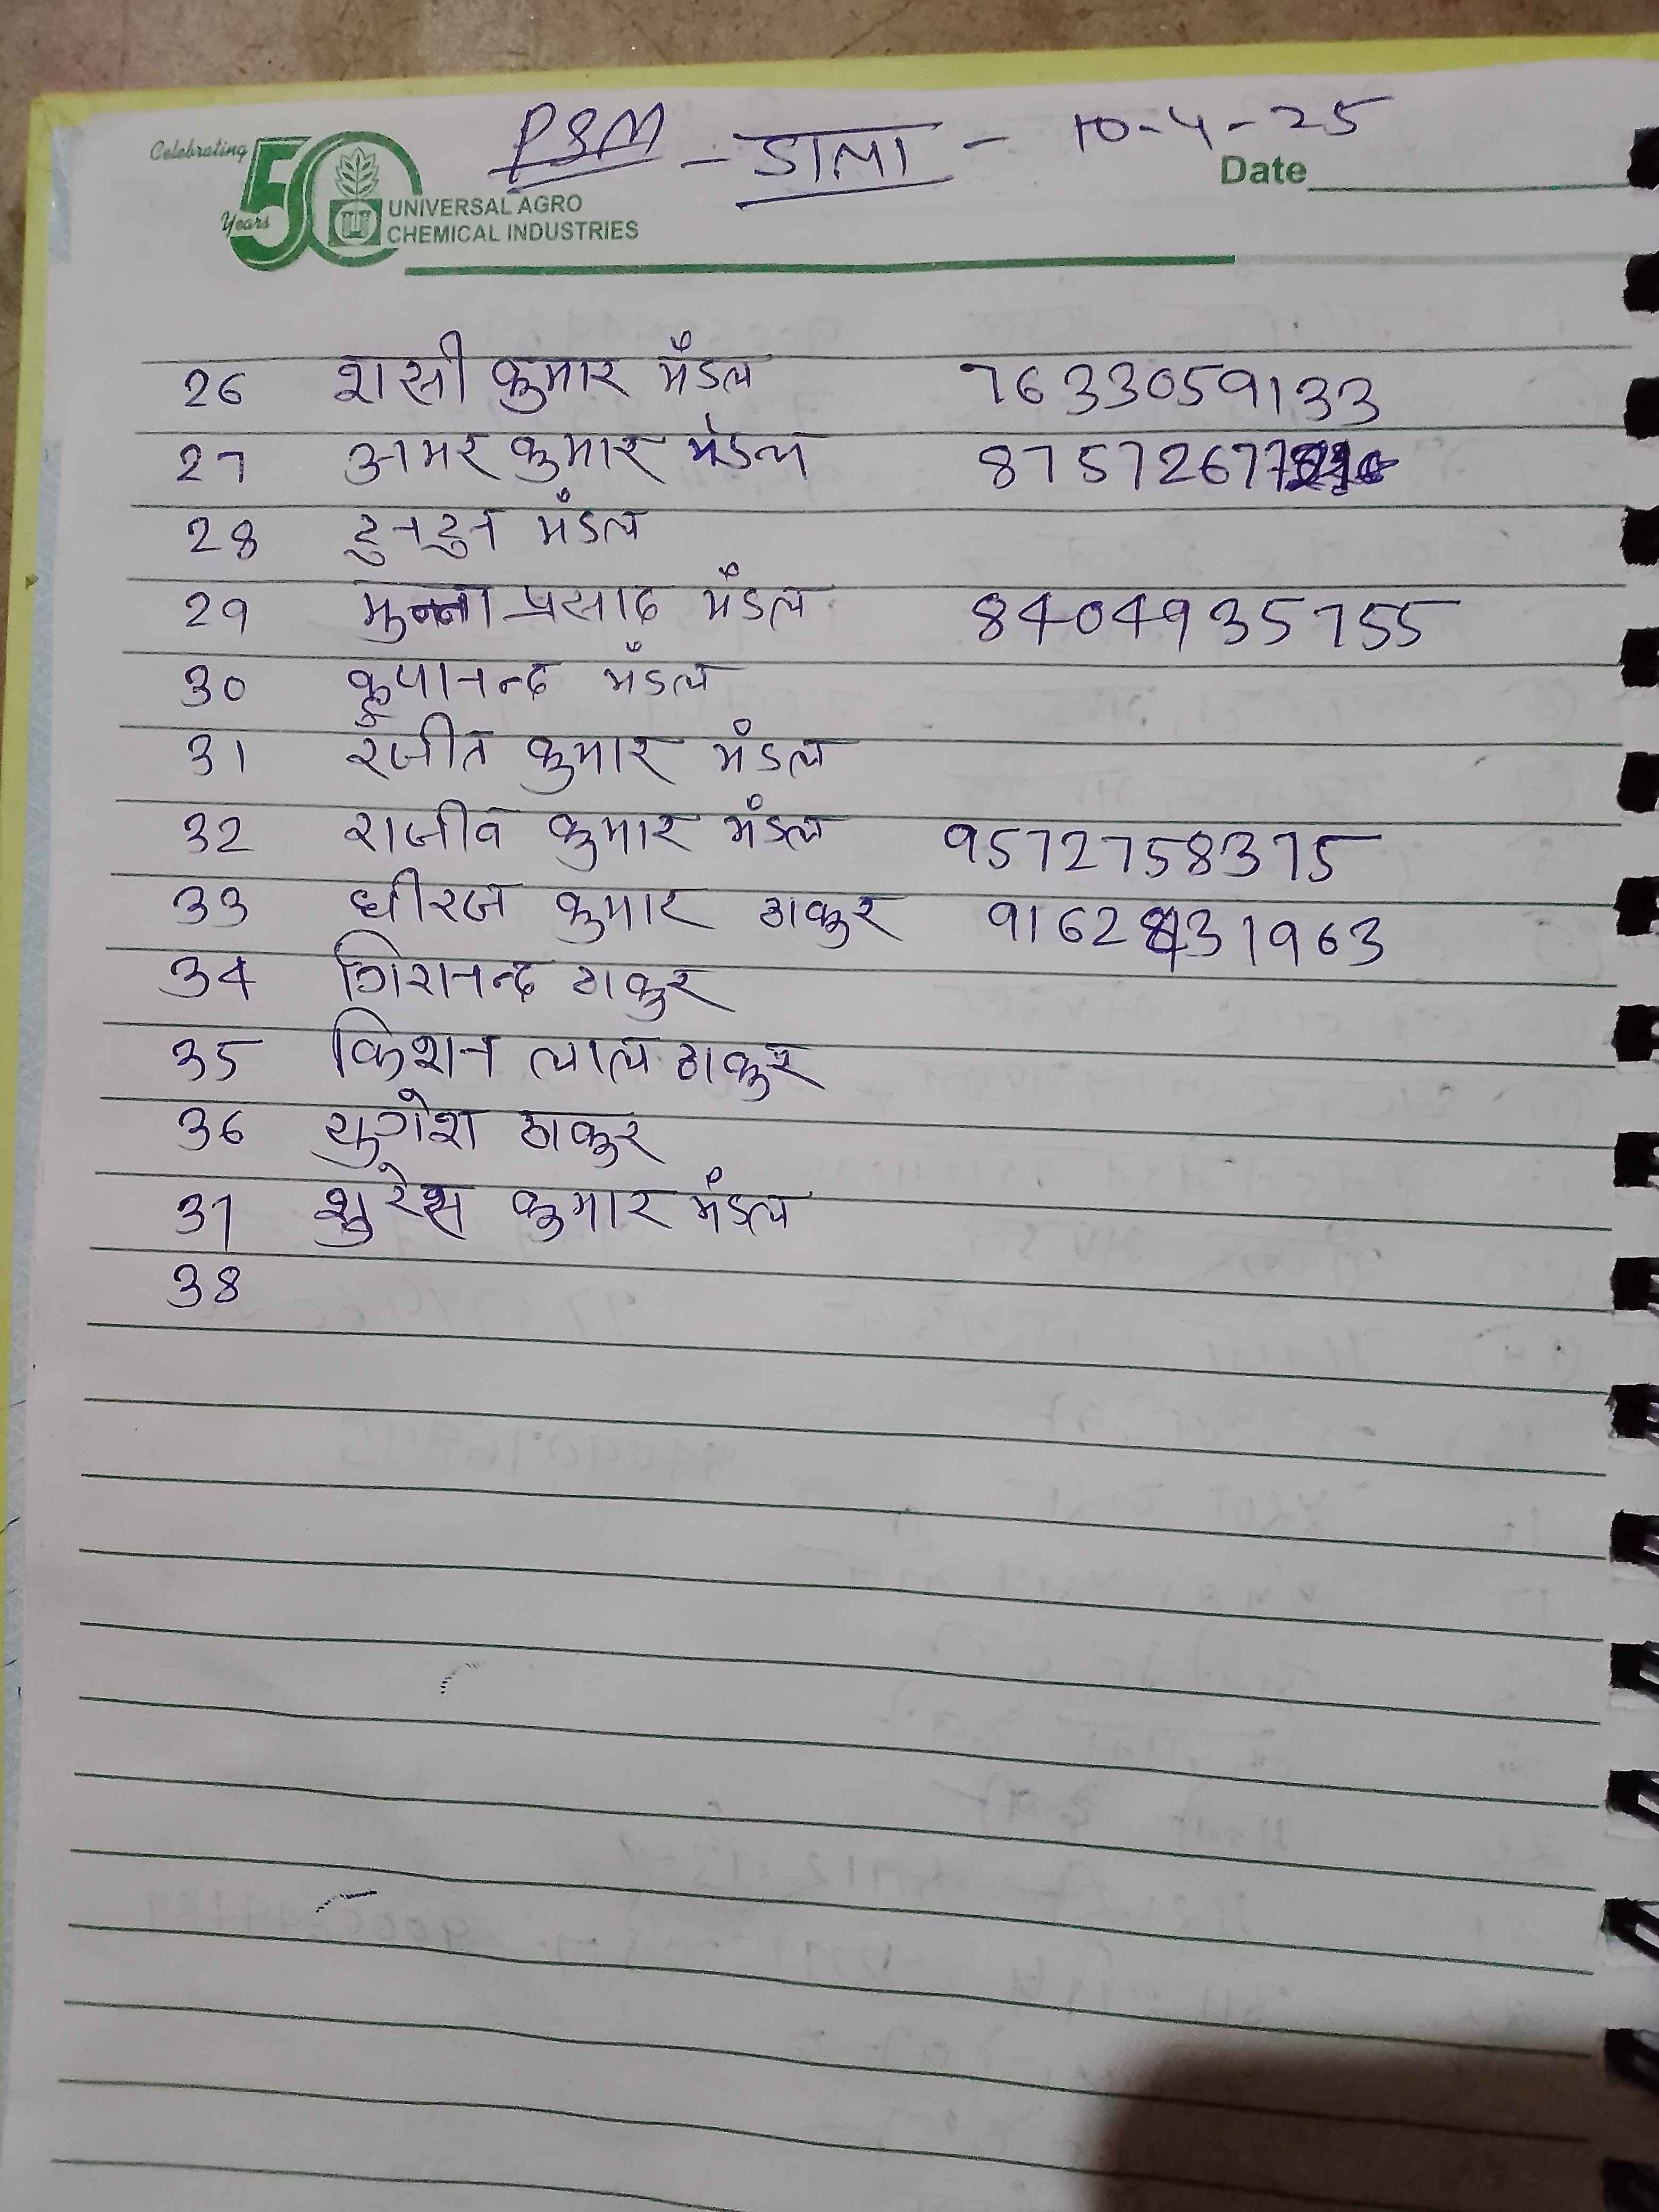 PSM - डाला - 10-4-25
Celebrating 50 Years
UNIVERSAL AGRO
CHEMICAL INDUSTRIES
Date
26 शसी कुमार मंडल 7633059133
27 अमर कुमार मंडल 87572677
28 टुनटुन मंडल
29 मुन्ना प्रसाद मंडल 8404935755
30 कृपानन्द मंडल
31 रंजीत कुमार मंडल
32 राजीव कुमार मंडल 9572758375
33 धीरज कुमार ठाकुर 9162431963
34 गिरानन्द ठाकुर
35 किशन लाल ठाकुर
36 युगेश ठाकुर
37 शुरेश कुमार मंडल
38